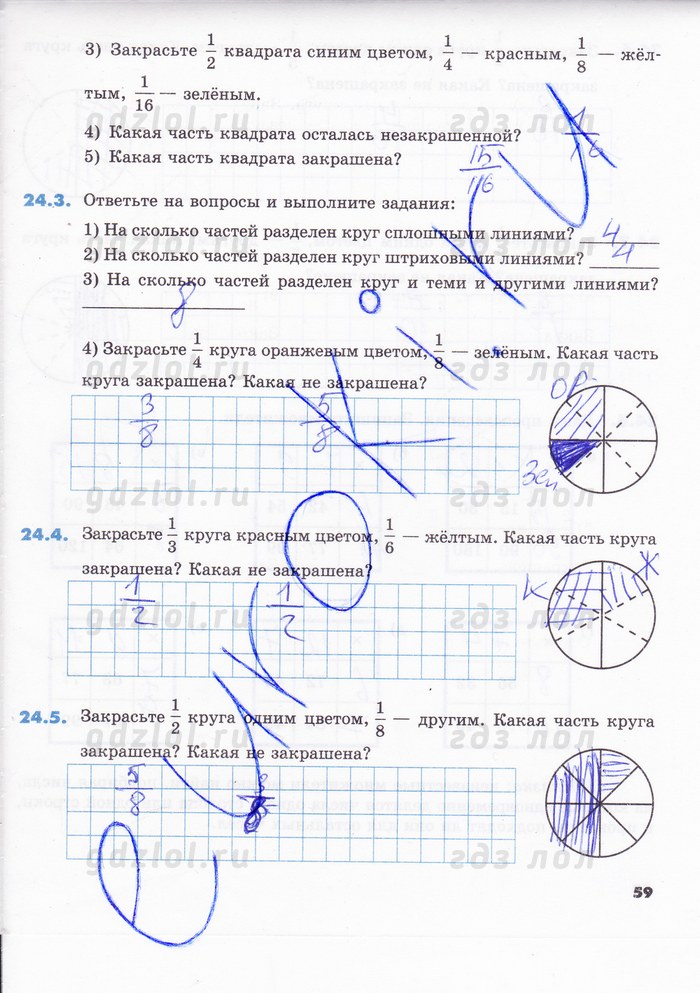 3) Закрасьте 1/2 квадрата синим цветом, 1/4 — красным, 1/8 — жёл-
тым, 1/16 — зелёным.
4) Какая часть квадрата осталась незакрашенной? 1/16
5) Какая часть квадрата закрашена? 15/16
24.3. Ответьте на вопросы и выполните задания:
1) На сколько частей разделен круг сплошными линиями? 4
2) На сколько частей разделен круг штриховыми линиями? 4
3) На сколько частей разделен круг и теми и другими линиями?
8
4) Закрасьте 1/4 круга оранжевым цветом, 1/8 — зелёным. Какая часть
круга закрашена? Какая не закрашена?
3/8 5/8
ор.
Зел
gdzlol.ru гдз лол
24.4. Закрасьте 1/3 круга красным цветом, 1/6 — жёлтым. Какая часть круга
закрашена? Какая не закрашена?
1/2 1/2
К Ж
gdzlol.ru гдз лол
24.5. Закрасьте 1/2 круга одним цветом, 1/8 — другим. Какая часть круга
gdzlol.ru гдз лол
закрашена? Какая не закрашена?
5/8 3/8
gdzlol.ru гдз лол
59